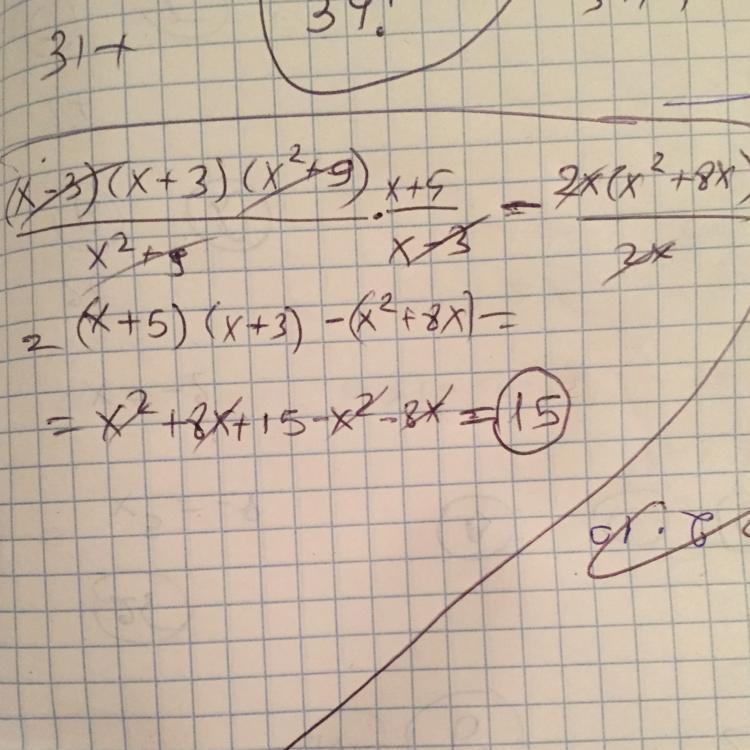 39!
31+
(x-3)(x+3)(x²+9)/x²+9 · x+5/x-3 - 2x(x²+8x)/2x
= (x+5)(x+3)-(x²+8x)=
= x²+8x+15-x²-8x=15